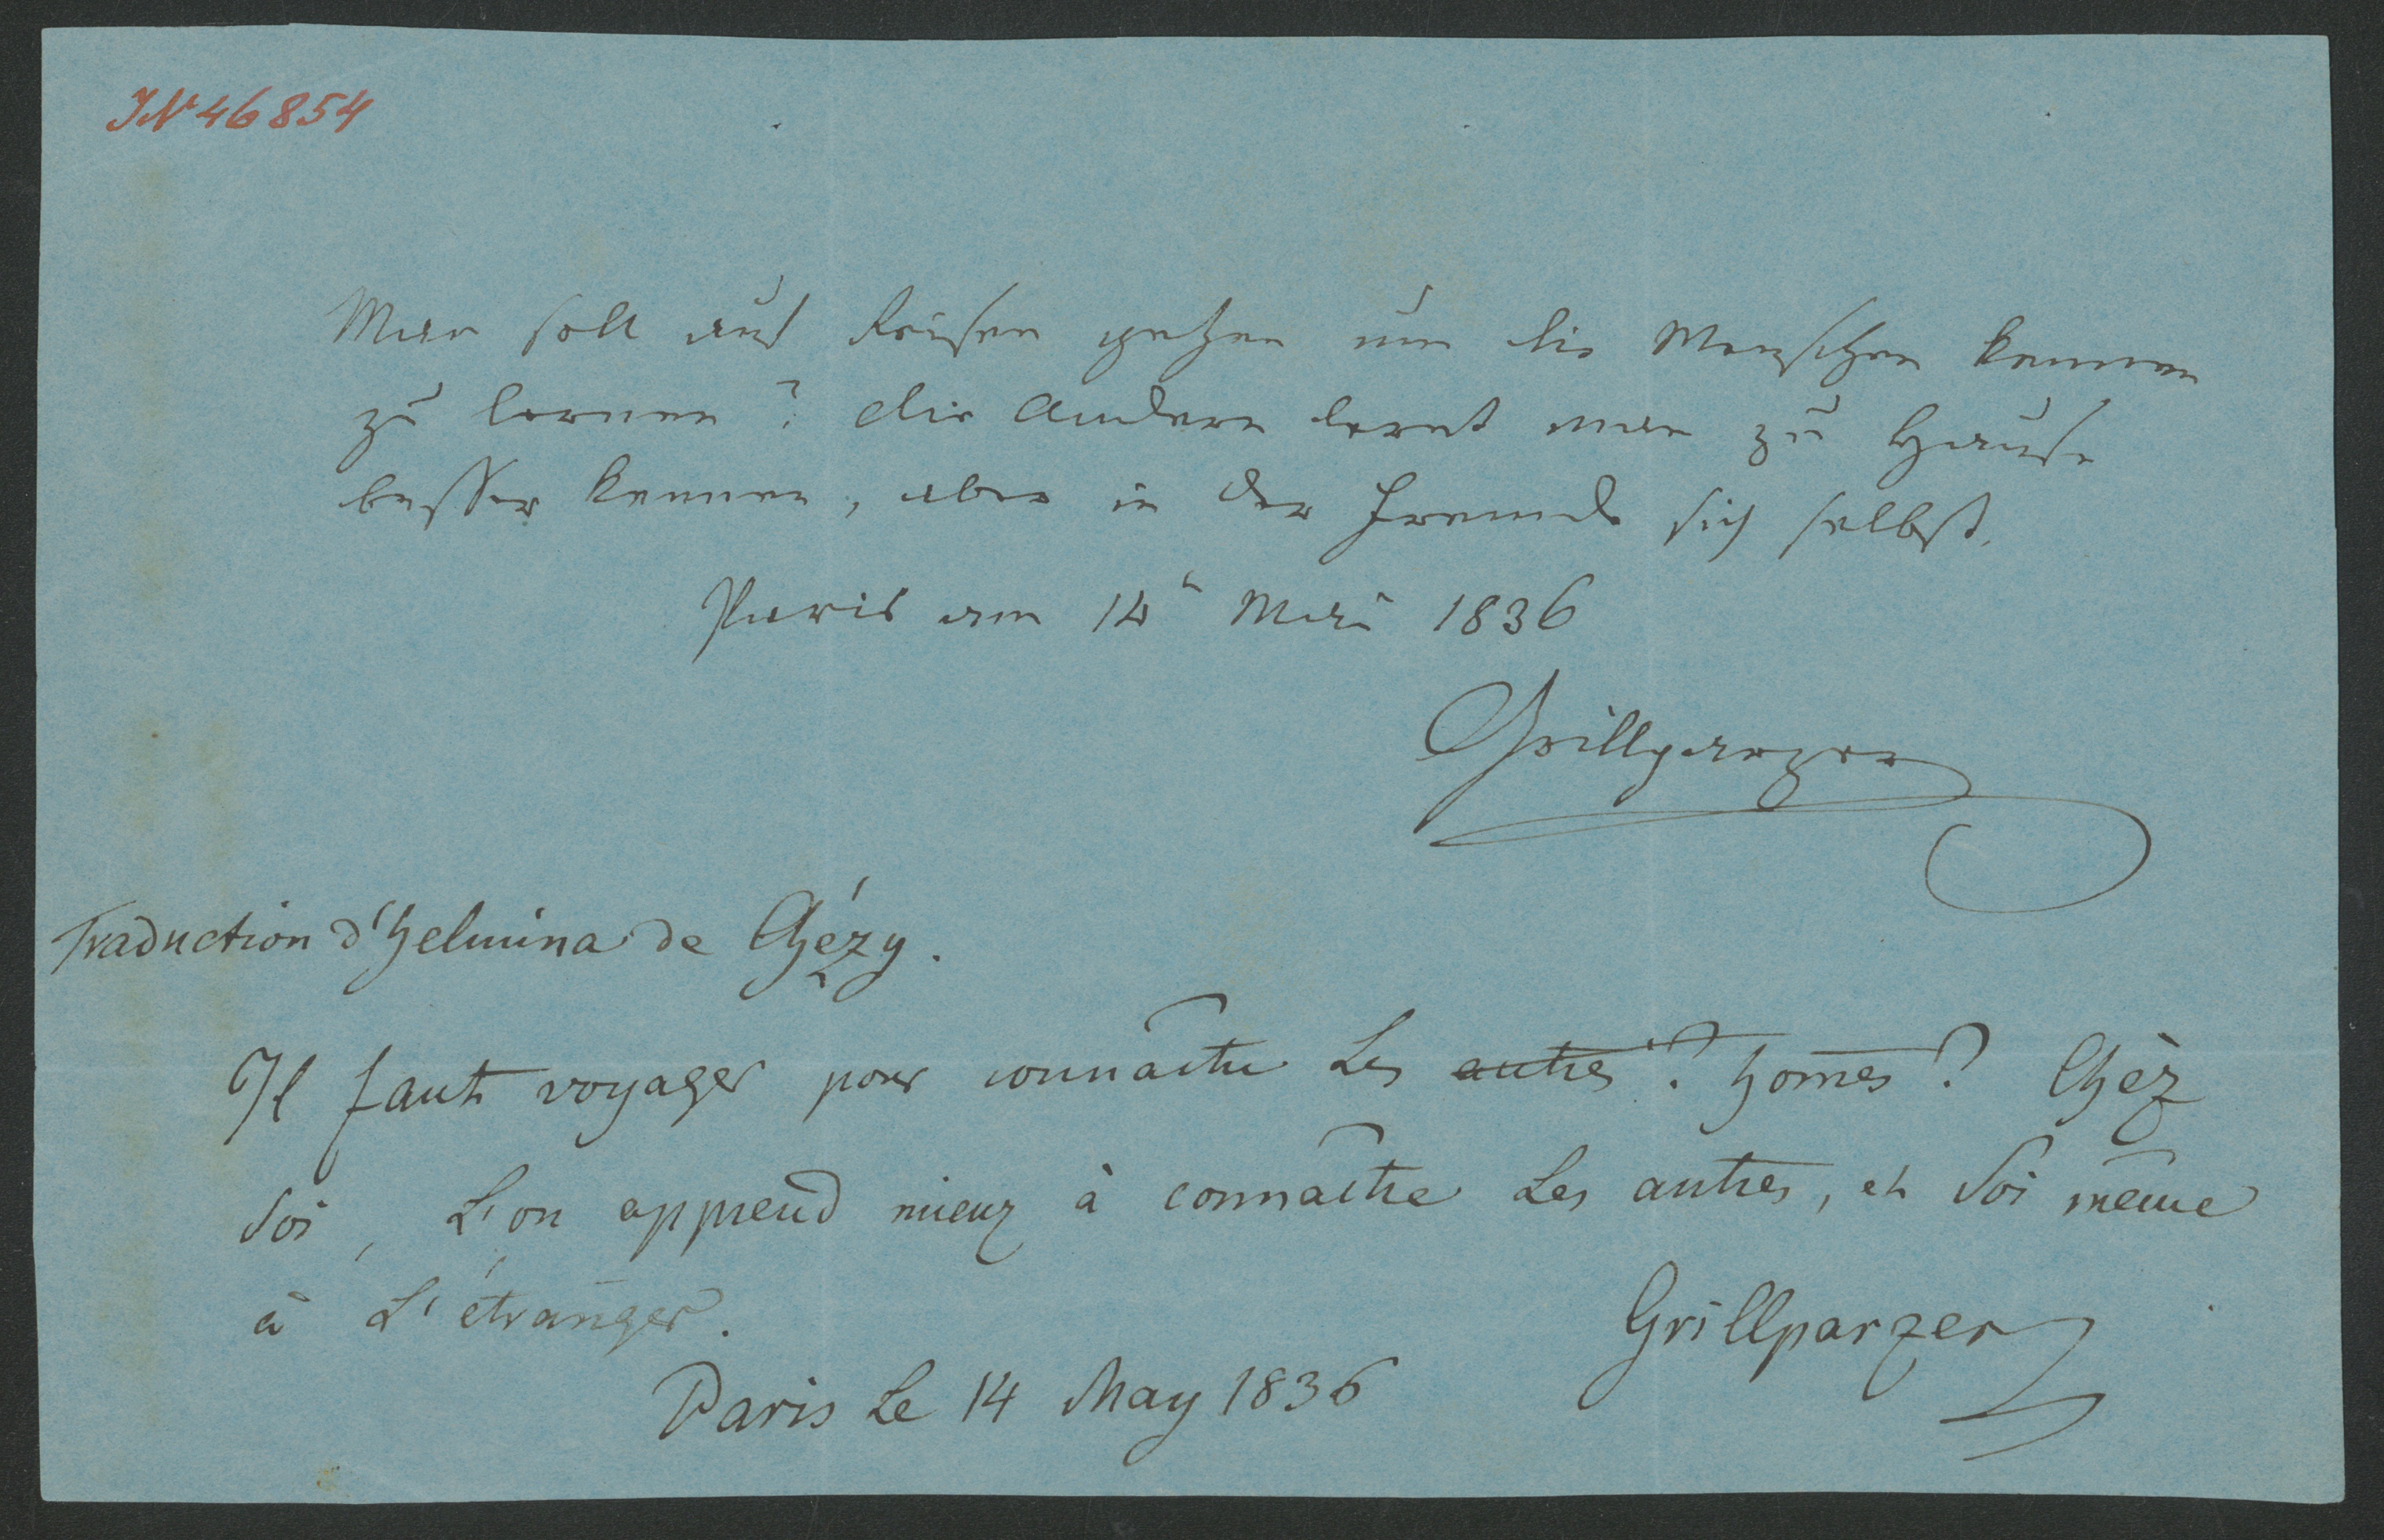 IN 46854
Man soll auf Reisen gehen um die Menschen kennen
zu lernen? die Andern lernt man zu Hause
besser kennen, aber in der Fremde sich selbst.
Paris am 14t Mai 1836
Grillparzer
Traduction d'helmina de Chézy.
Il faut voyager pour connaître Les autres? homes? Chèz
Soi, L'on apprend mieux à connaître Les autres, et Soi même
à L'étranger.
Grillparzer
Paris Le 14 May 1836